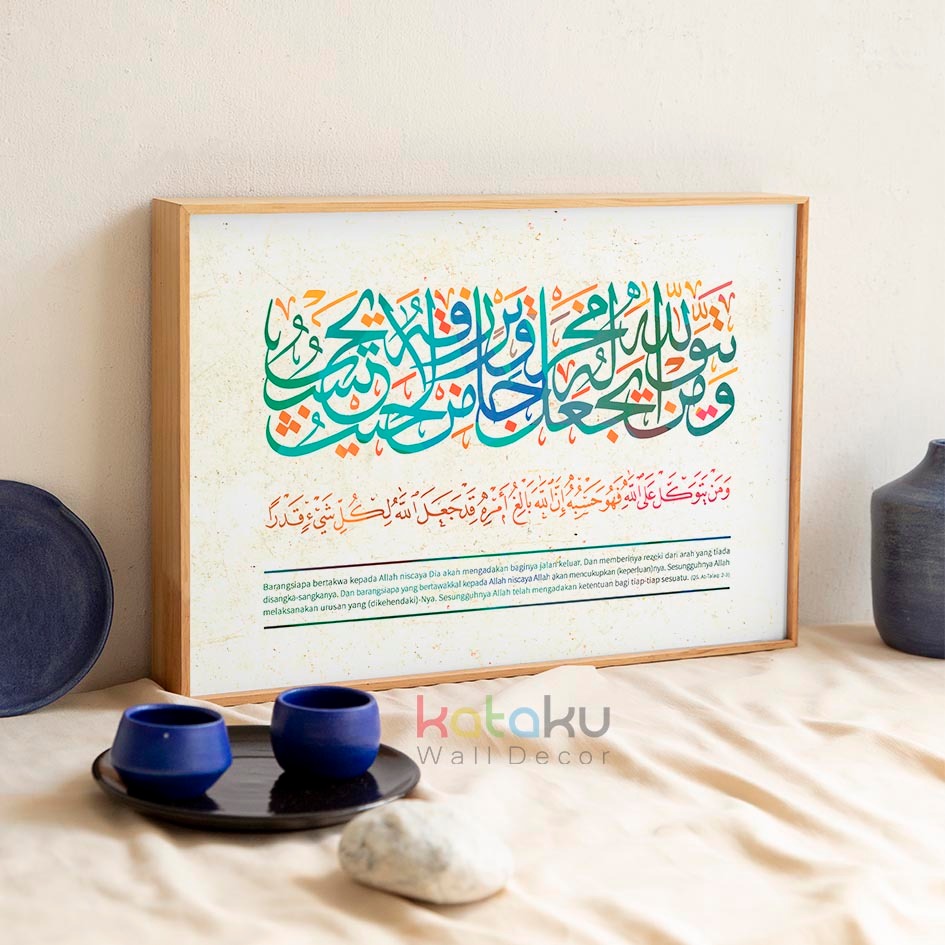 ومن يتق الله يجعل له مخرجا ويرزقه من حيث لا يحتسب
وَمَنْ يَتَوَكَّلْ عَلَى ٱللَّهِ فَهُوَ حَسْبُهُ إِنَّ ٱللَّهَ بَالِغُ أَمْرِهِ قَدْ جَعَلَ ٱللَّهُ لِكُلِّ شَيْءٍ قَدْرًا
Barangsiapa bertakwa kepada Allah niscaya Dia akan mengadakan baginya jalan keluar. Dan memberinya rezeki dari arah yang tiada
disangka-sangkanya. Dan barangsiapa yang bertawakkal kepada Allah niscaya Allah akan mencukupkan (keperluan)nya. Sesungguhnya Allah
melaksanakan urusan yang (dikehendaki)-Nya. Sesungguhnya Allah telah mengadakan ketentuan bagi tiap-tiap sesuatu. (QS. At-Talaq: 2-3)
kataku
Wall Decor